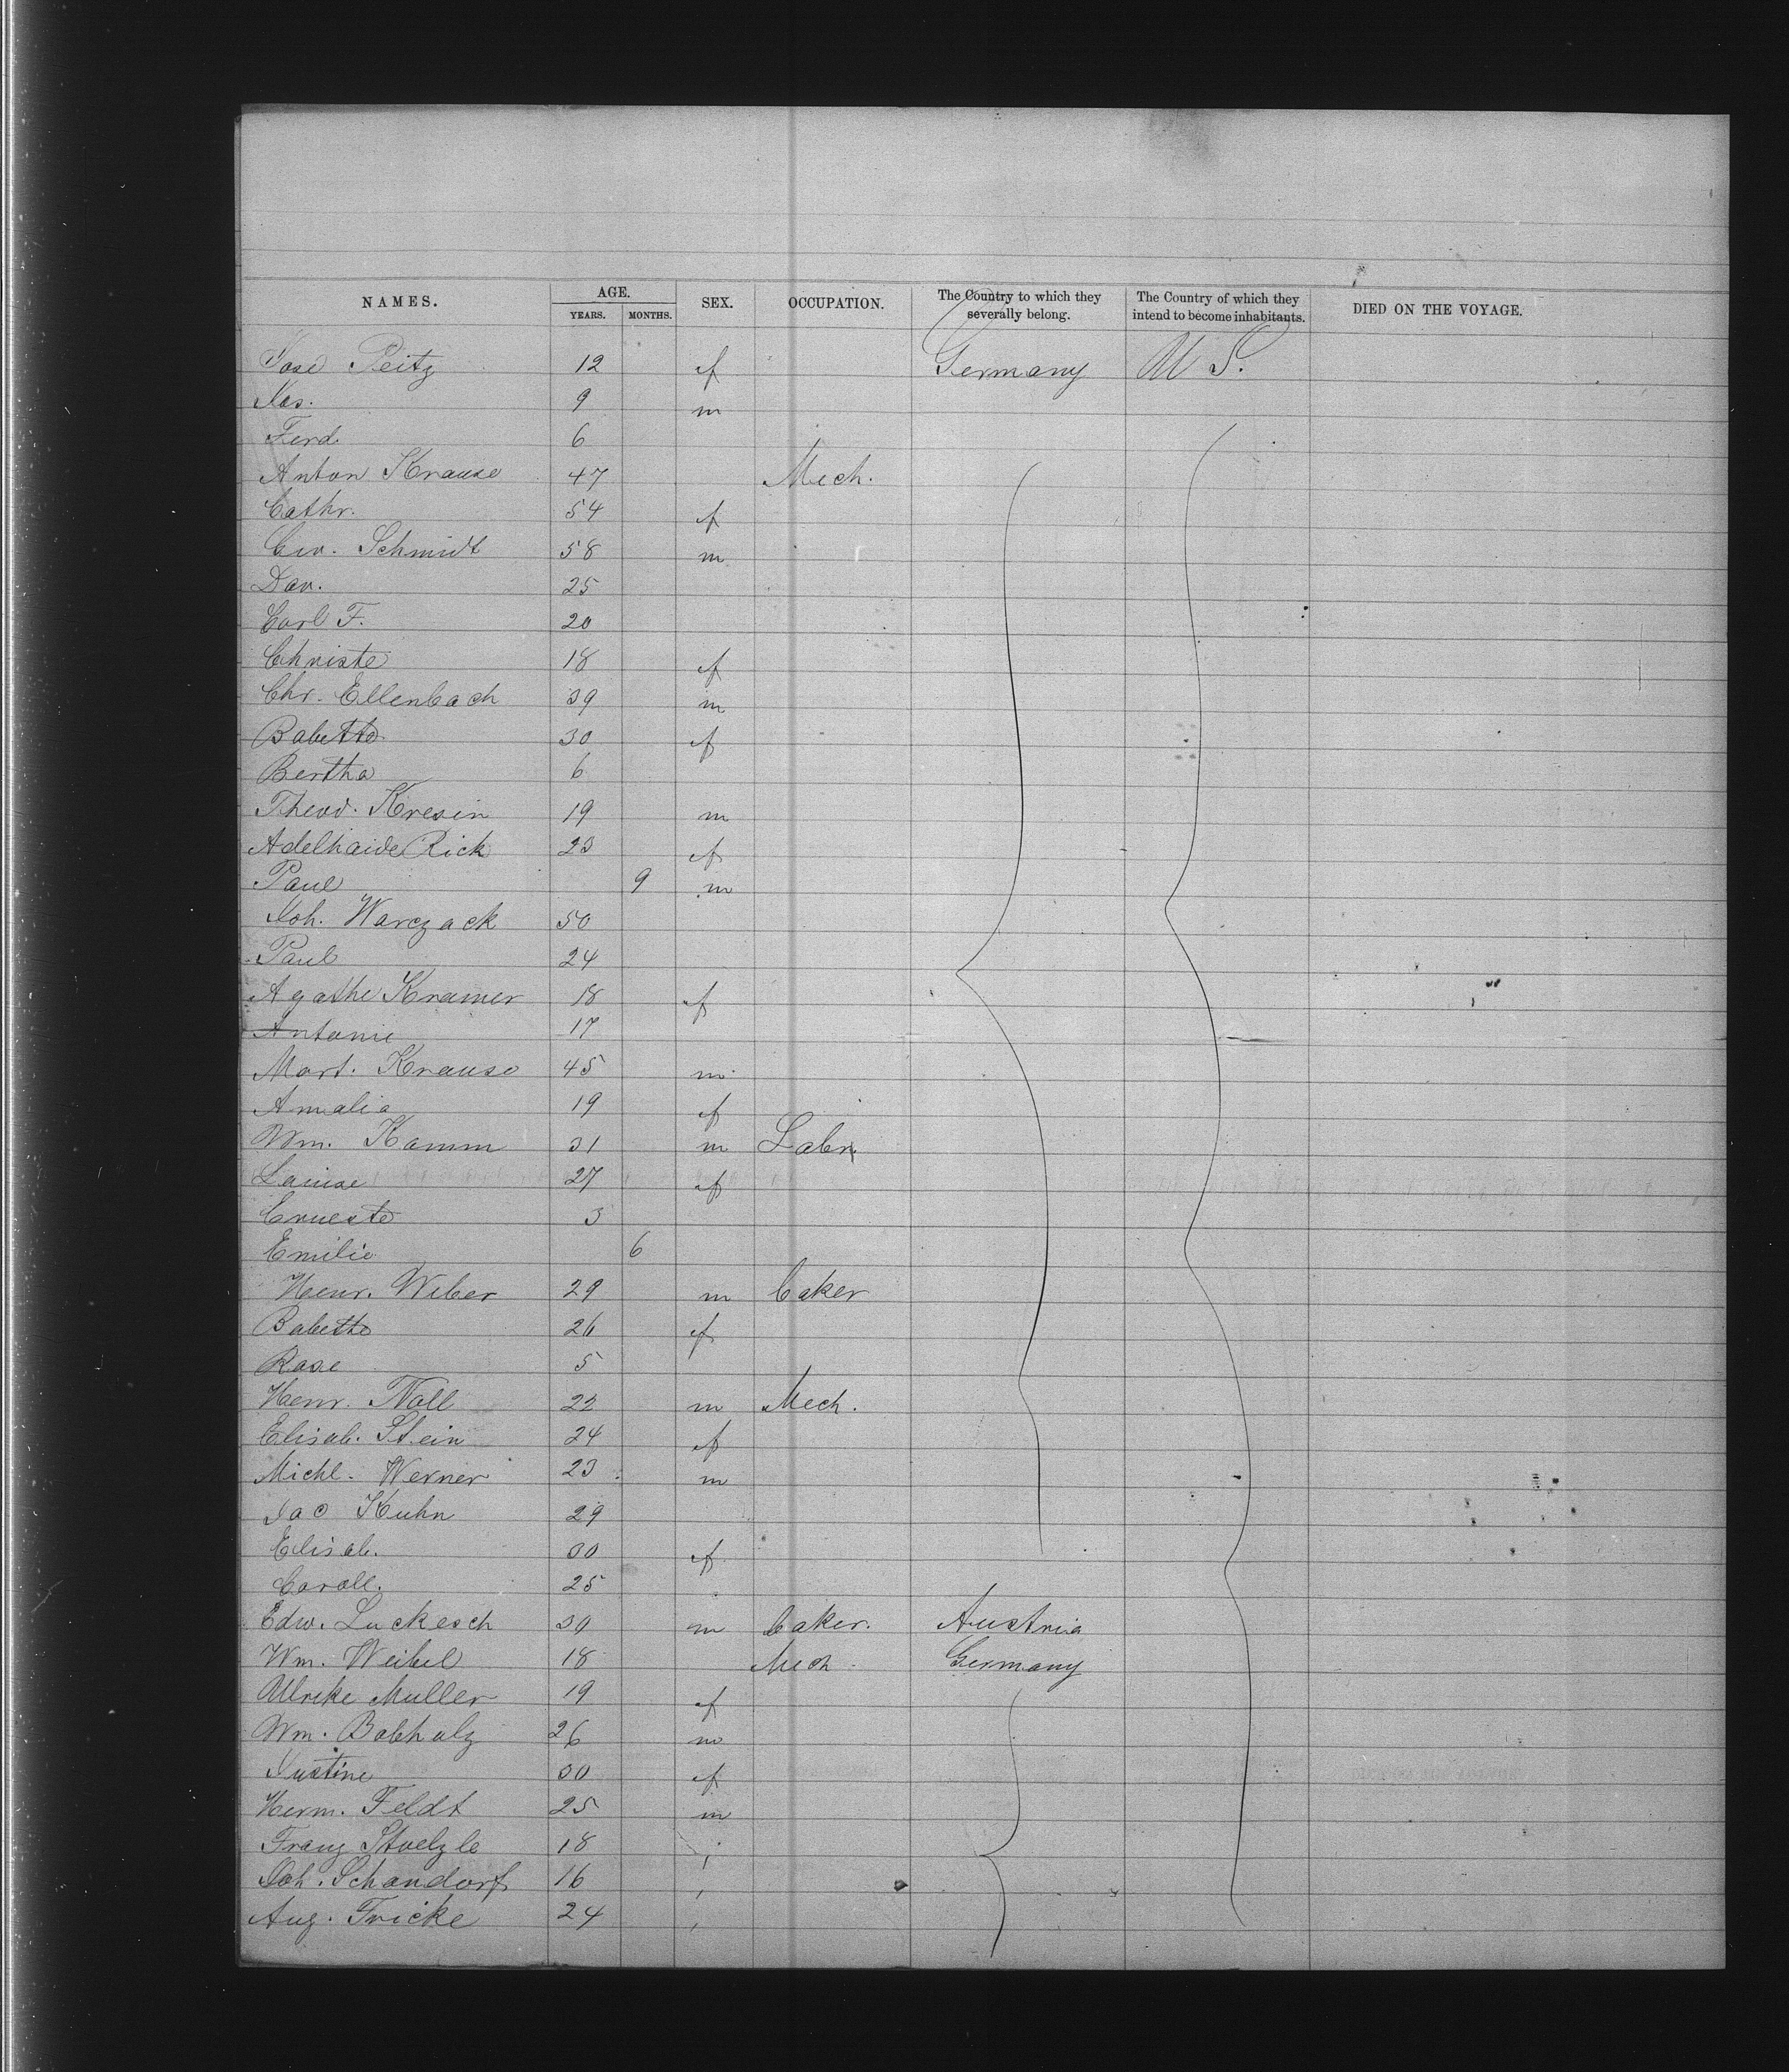 NAMES. AGE. SEX. OCCUPATION. The Country to which they severally belong. The Country of which they intend to become inhabitants. DIED ON THE VOYAGE.
YEARS. MONTHS.
Peitz 12 f Germany U S.
Jos. 9 m
Ferd. 6
Anton Krause 47 Mech.
Cathr. 54 f
Schmidt 58 m
Dav. 25
Carl F. 20
Christe 18 f
Chr. Ellenbach 39 m
Babette 30 f
Bertha 6
Theod. Kresin 19 m
Adelhaide Rick 23 f
Paul 9 m
Joh. Warczack 50
Paul 24
Agathe Kramer 18 f
Antonie 17
Mart. Krause 45 m
Amalia 19 f
Wm. Kamm 31 m Labr
Louise 27 f
Erneste 3
Emilie 6
Henr. Weber 29 m baker
Babette 26 f
Rose 5
Henr. Noll 22 m Mech.
Elisab. Stein 24 f
Michl. Werner 23 m
Jac Kuhn 29
Elisab. 30 f
Caroll. 25
Edw. Luckesch 39 m baker. Austria
Wm. Weibel 18 Mech. Germany
Ulrike Muller 19 f
Wm. Bobholz 26 m
Justine 30 f
Herm. Feldt 25 m
Franz Stoelzle 18 "
Joh. Schandorf 16 "
Aug. Fricke 24 "